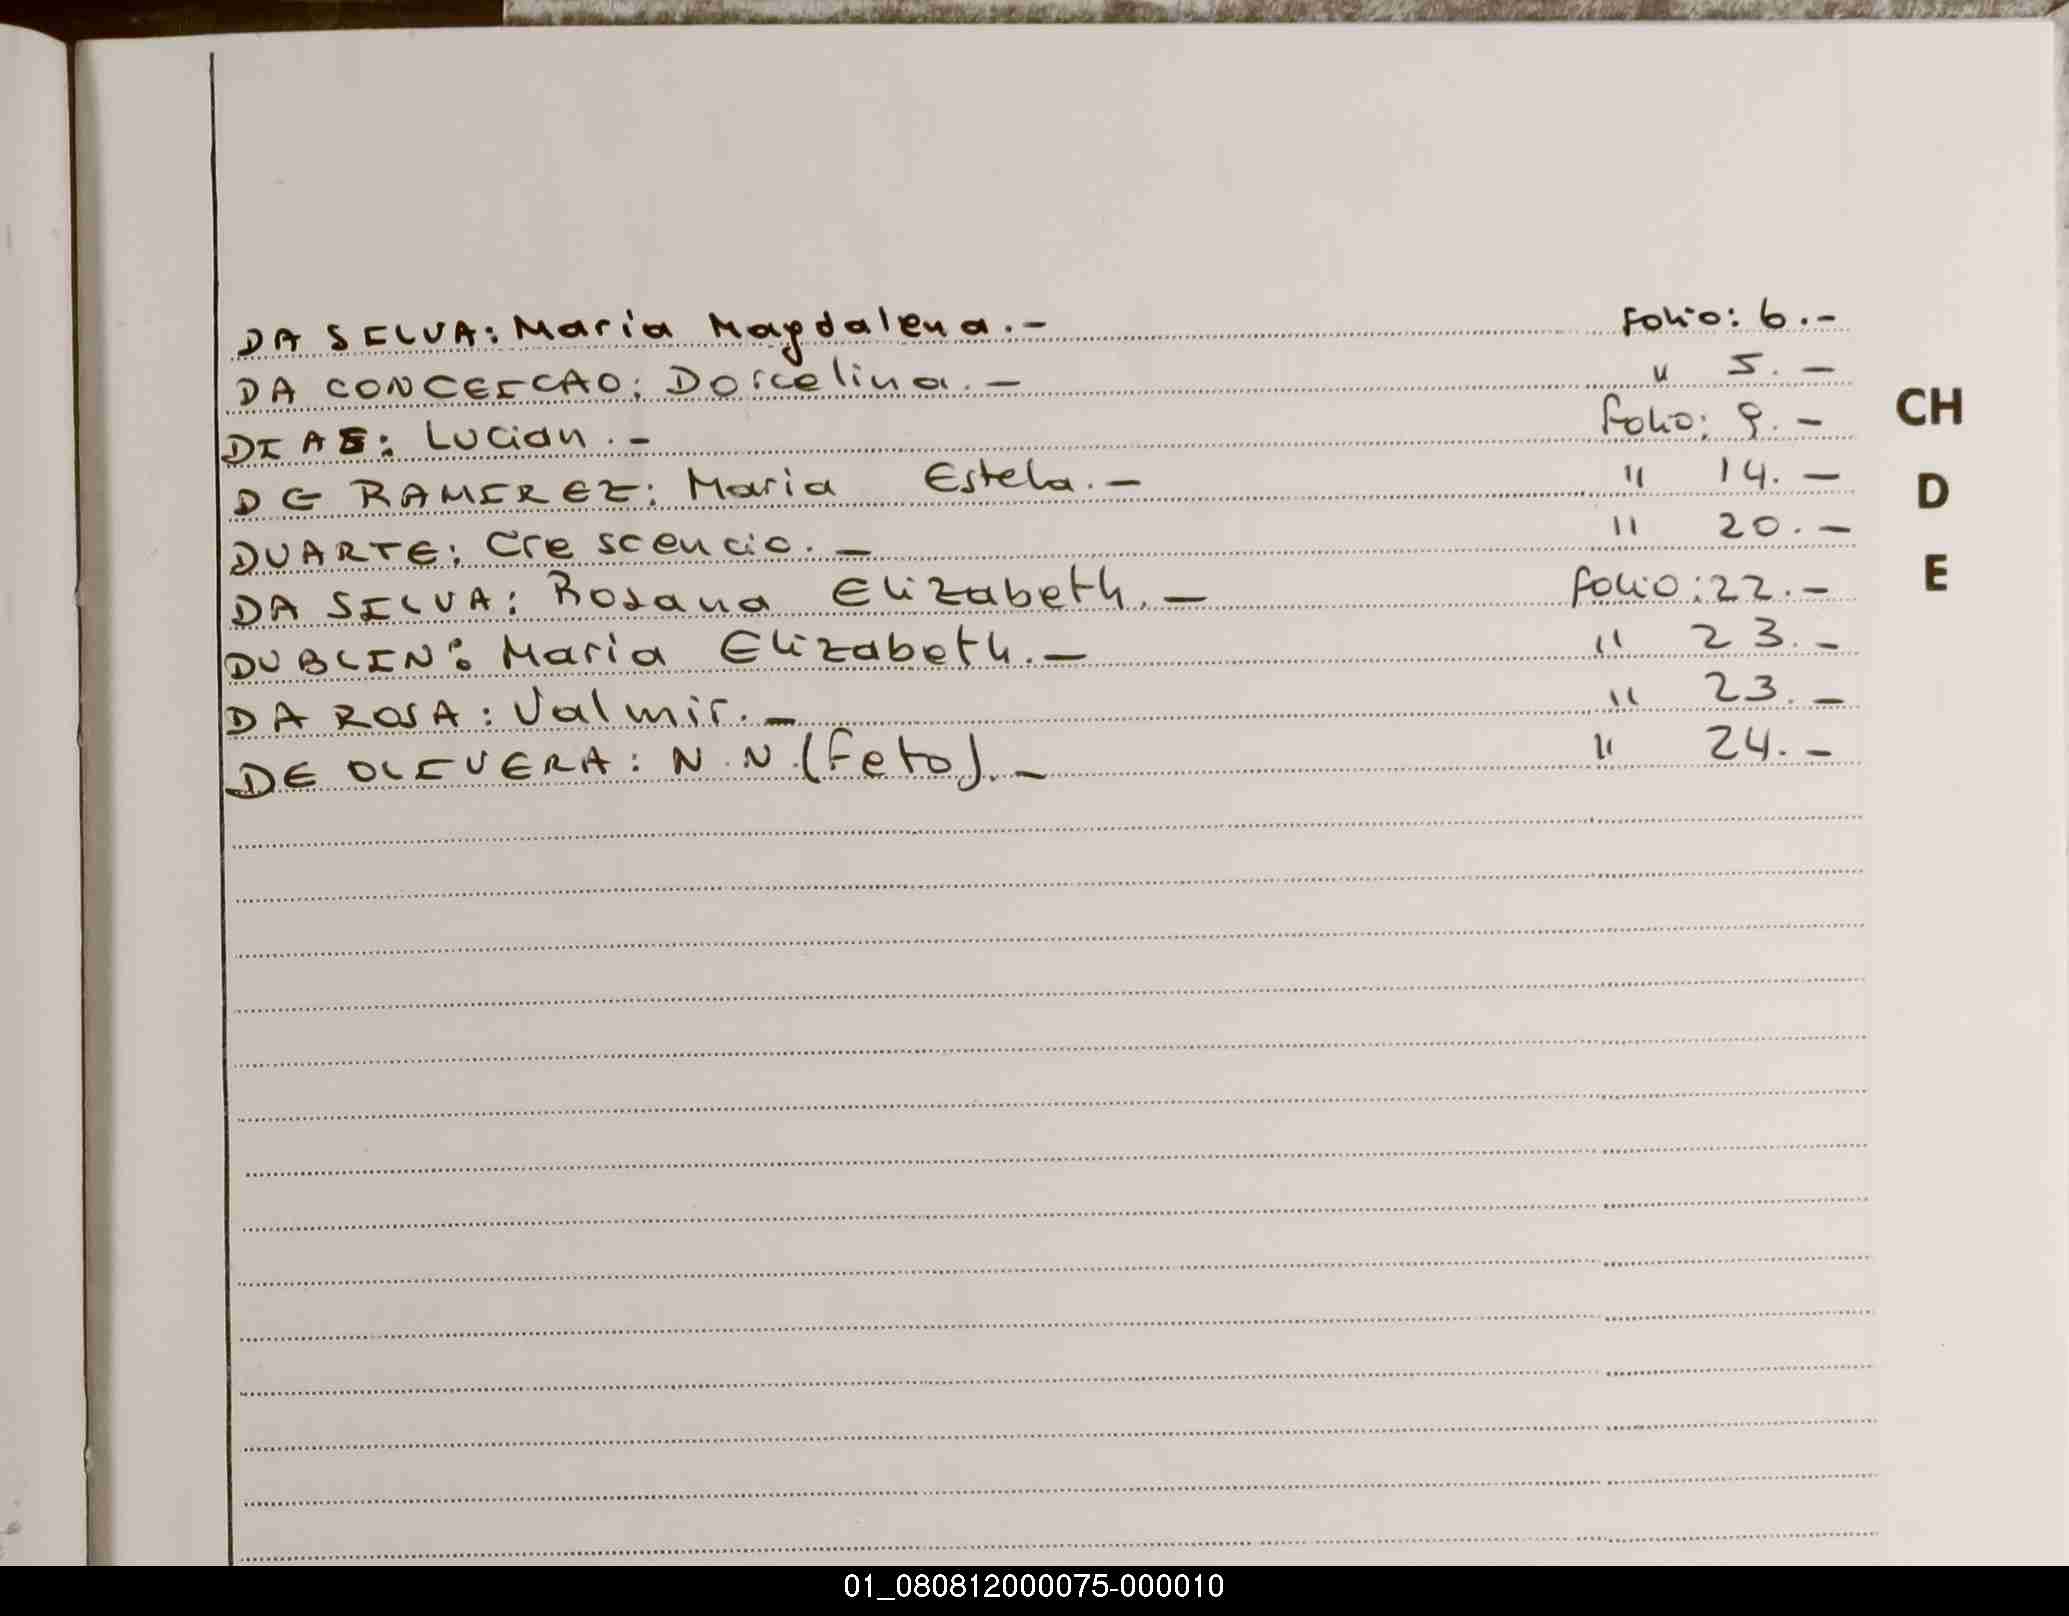 DA SILVA: Maria Magdalena.- folio: 6.-
DA CONCEICAO: Dorcelina.- " 5.-
DIAS: Lucian.- folio: 9.-
DE RAMIREZ: Maria Estela.- " 14.-
DUARTE: Crescencio.- " 20.-
DA SILVA: Rosana Elizabeth.- folio: 22.-
DUBLIN: Maria Elizabeth.- " 23.-
DA ROSA: Valmir.- " 23.-
DE OLIVERA: N.N.(Feto).- " 24.-
CH
D
E
01_080812000075-000010